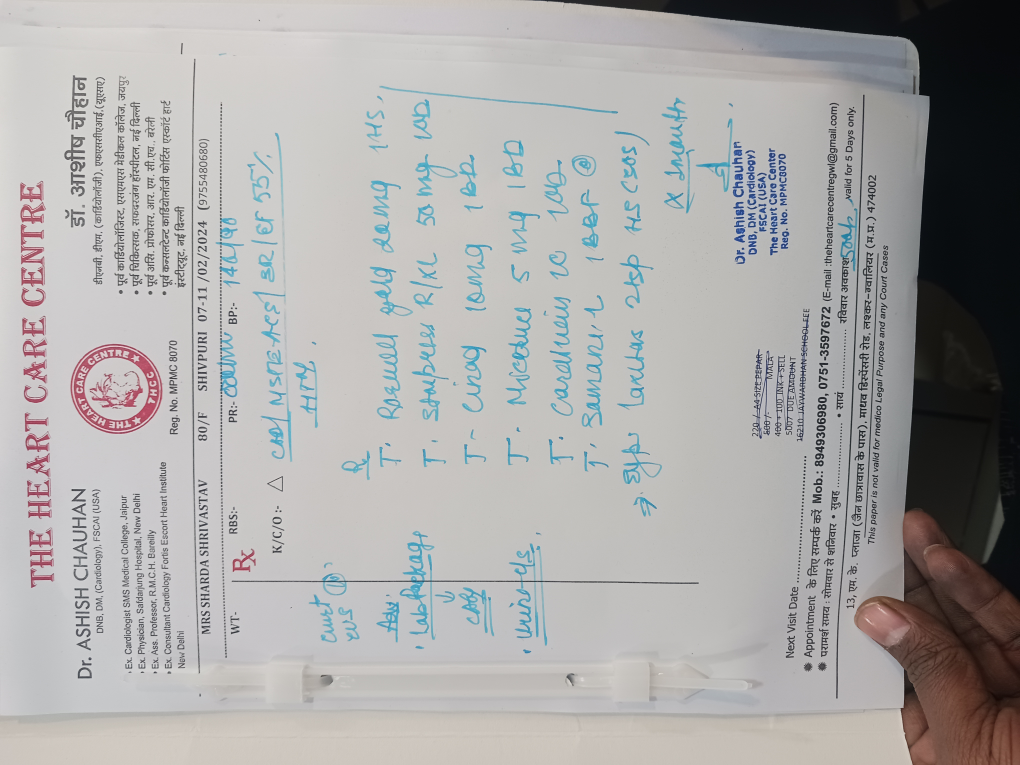 THE HEART CARE CENTRE
Dr. ASHISH CHAUHAN
DNB, DM, (Cardiology), FSCAI (USA)
• Ex. Cardiologist SMS Medical College, Jaipur
• Ex. Physician, Safdarjung Hospital, New Delhi
• Ex. Ass. Professor, R.M.C.H. Bareilly
• Ex. Consultant Cardiology Fortis Escort Heart Institute
New Delhi
THE HEART CARE CENTRE
THCC
Reg. No. MPMC 8070
डॉ. आशीष चौहान
डीएनबी, डीएम, (कार्डियोलॉजी), एफएससीएआई,(यूएसए)
• पूर्व कार्डियोलॉजिस्ट, एसएमएस मेडीकल कॉलेज, जयपुर
• पूर्व चिकित्सक, सफदरजंग हॉस्पीटल, नई दिल्ली
• पूर्व असि. प्रोफेसर, आर. एम. सी.एच., बरेली
• पूर्व कन्सलटेन्ट कार्डियोलॉजी फोर्टिस एस्कॉर्ट हार्ट
इंस्टीट्यूट, नई दिल्ली
MRS SHARDA SHRIVASTAV 80/F SHIVPURI 07-11 /02/2024 (9755480680)
WT:- RBS:- PR:- BP:- 140/90
Rx
K/C/O:- △ CAD/ / SR/EF 55%
HTN.
Adv.
• Lab Package
↓
CADY
• Urine
R
T. Rosuwell gold 20mg 1HS,
T. R/XL 50 mg 1OD
T- 10mg 1BD
T. 5 mg 1BD
T. 10 1OD
T. 1BBF
⇒ Syp. 2tsp HS (SOS)
x 1month
Dr. Ashish Chauhan
DNB, DM (Cardiology)
FSCAI (USA)
The Heart Care Center
Reg. No. MPMC8070
270 / A4 SIZE PEPAR
500 /- MALA
400 + 100 INK + SELL
5007 DUE AMOUNT
16210 JAYWARDHAN SCHOOL FEE
Next Visit Date
valid for 5 Days only.
✹ Appointment के लिए सम्पर्क करें Mob.: 8949306980, 0751-3597672 (E-mail :theheartcarecentregwl@gmail.com)
✹ परामर्श समय : सोमवार से शनिवार • सुबह • सायं रविवार अवकाश
13, एम. के. प्लाजा (जैन छात्रावास के पास), माधव डिस्पेंसरी रोड, लश्कर-ग्वालियर (म.प्र.) 474002
This paper is not valid for medico Legal Purpose and any Court Cases